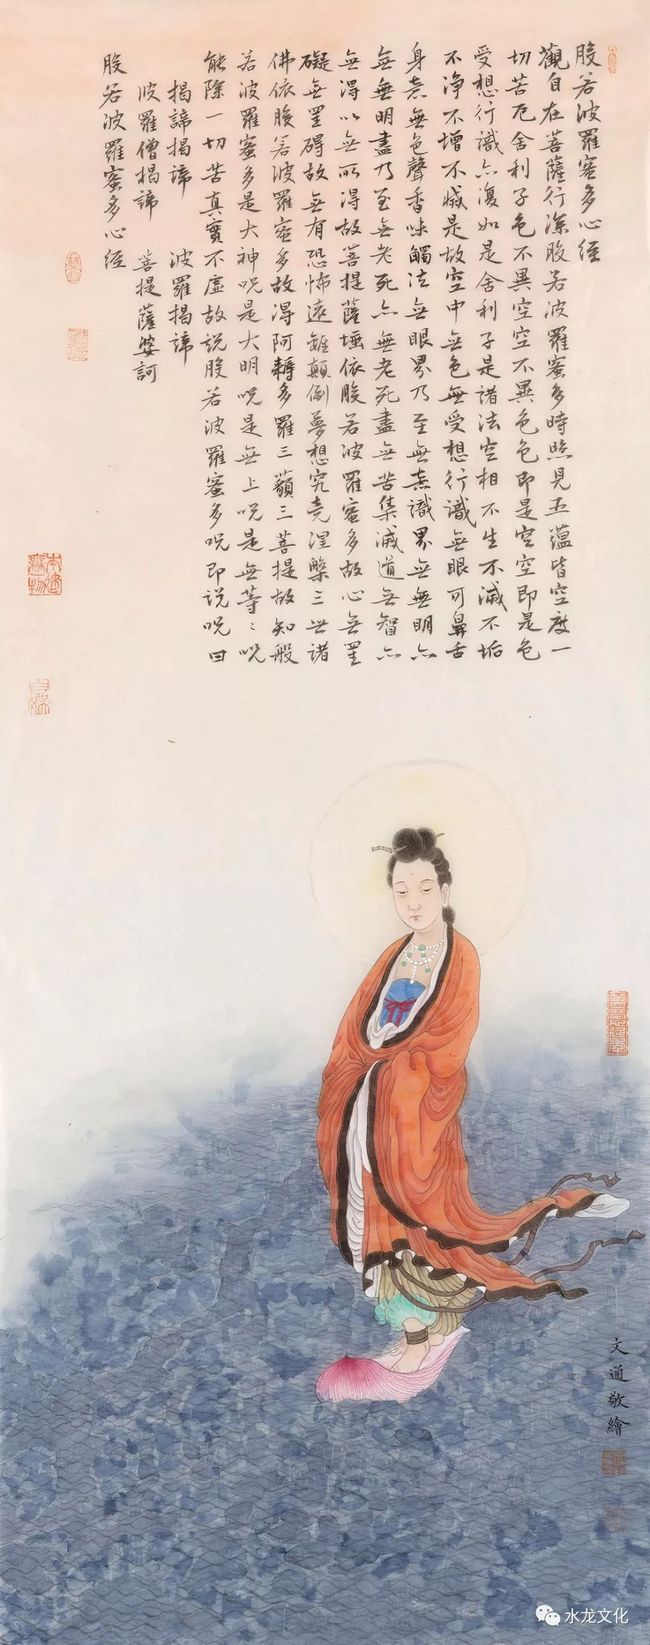 般若波羅蜜多心經
觀自在菩薩行深般若波羅蜜多時照見五蘊皆空度一
切苦厄舍利子色不異空空不異色色即是空空即是色
受想行識亦復如是舍利子是諸法空相不生不滅不垢
不淨不增不減是故空中無色無受想行識無眼耳鼻舌
身意無色聲香味觸法無眼界乃至無意識界無無明亦
無無明盡乃至無老死亦無老死盡無苦集滅道無智亦
無得以無所得故菩提薩埵依般若波羅蜜多故心無罣
礙無罣碍故無有恐怖遠離顛倒夢想究竟涅槃三世諸
佛依般若波羅蜜多故得阿耨多羅三藐三菩提故知般
若波羅蜜多是大神咒是大明咒是無上咒是無等〻咒
能除一切苦真實不虛故說般若波羅蜜多咒即說咒曰
揭諦揭諦 波羅揭諦
波羅僧揭諦 菩提薩婆訶
般若波羅蜜多心經
文道敬繪
水龙文化